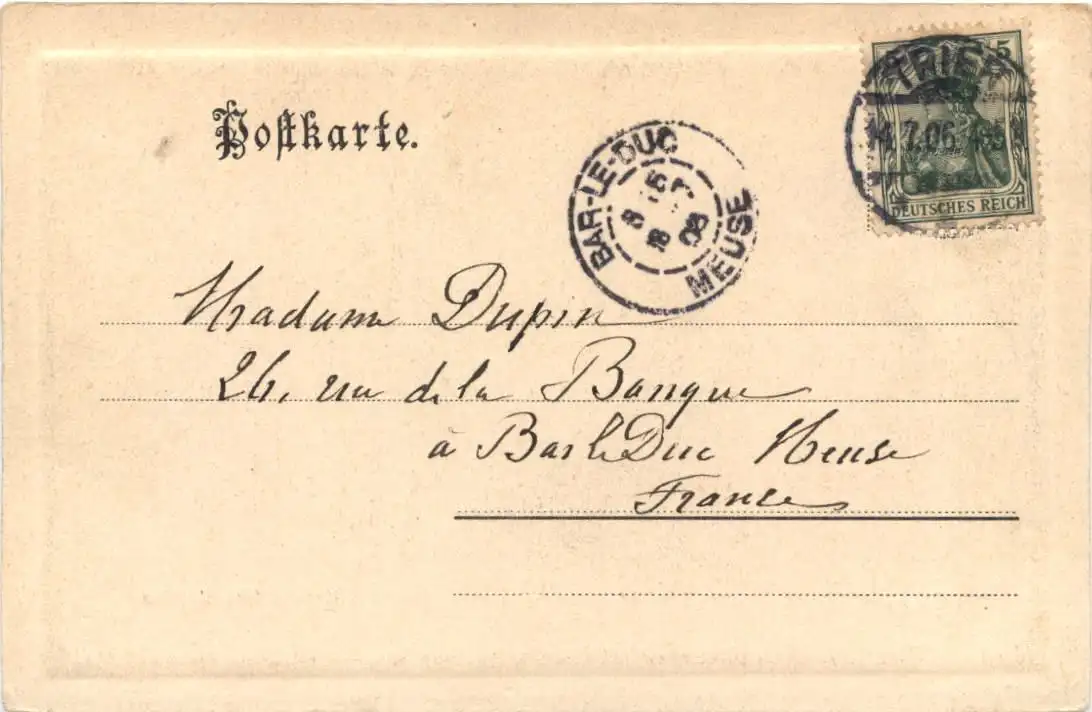 Postkarte.
5
TRIER
14.7.06.
DEUTSCHES REICH
BAR-LE-DUC
MEUSE
Madame Dupin
26, rue de la Banque
à Bar le Duc Meuse
France